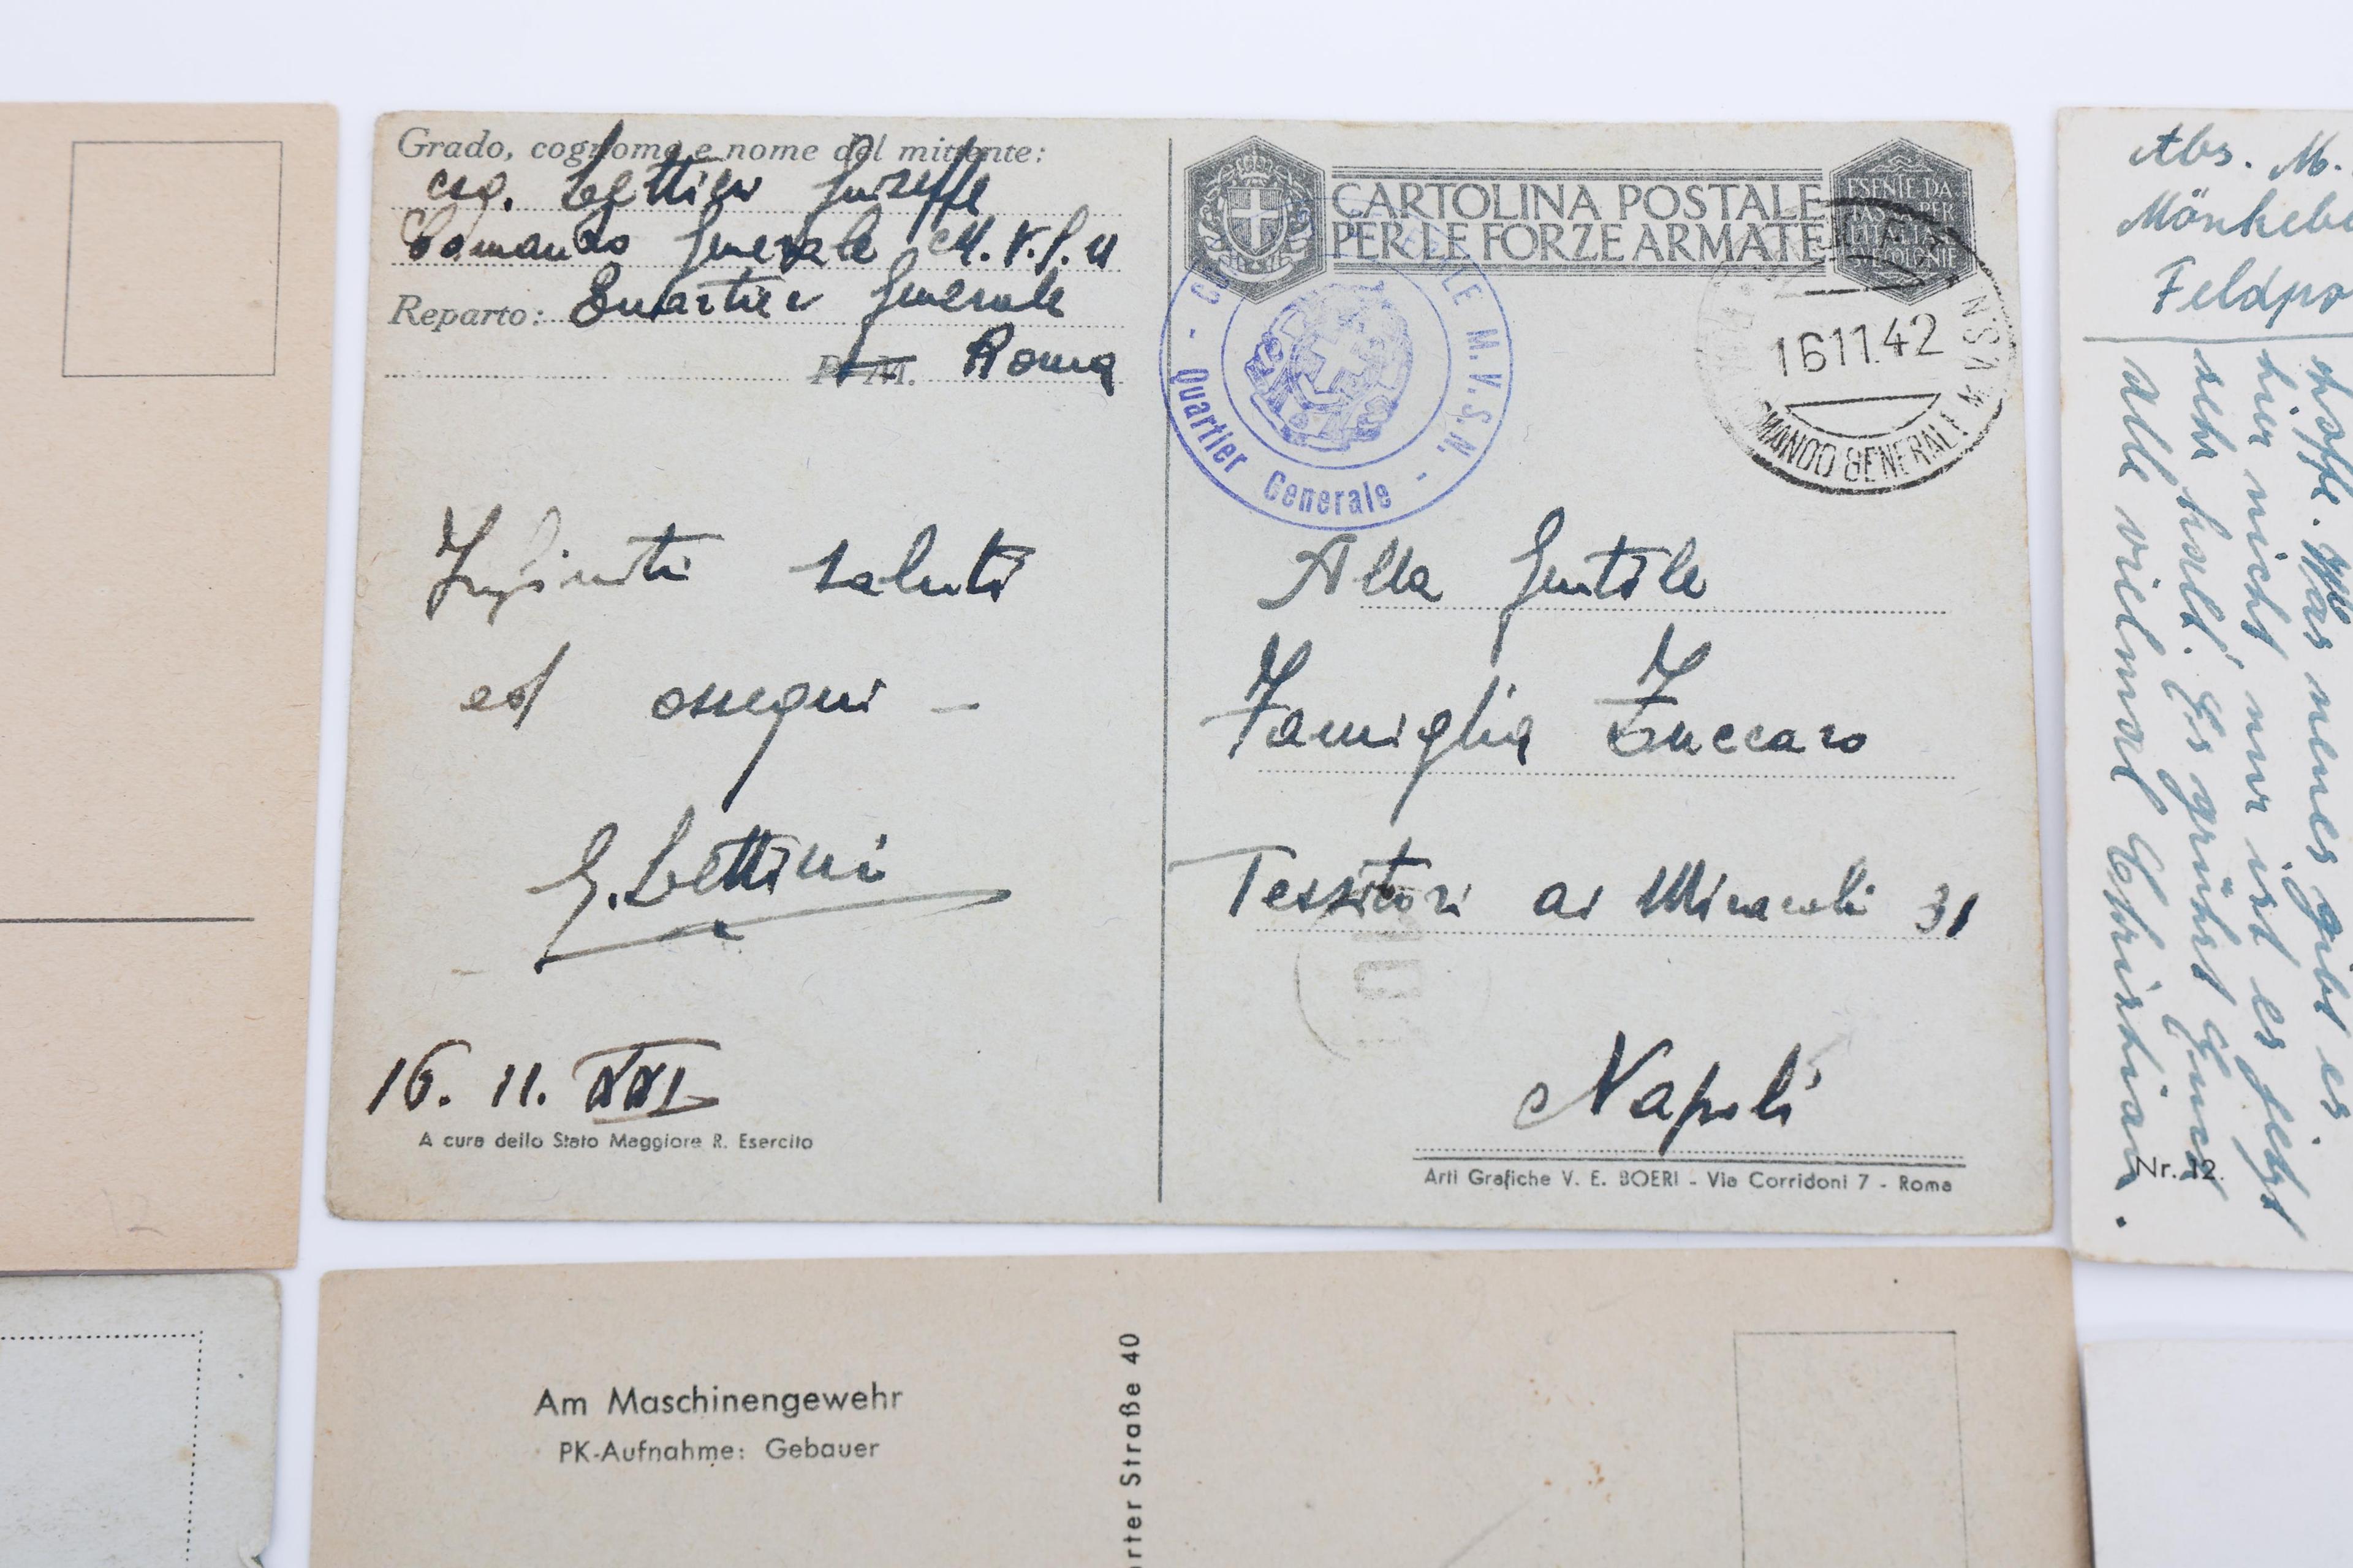 Grado, cognome e nome del mittente:
Giuseppe
Comando Generale M.V.S.N
Reparto: Quartier Generale
P. M. Roma
Infiniti saluti
ed ossequi -
G. Lettini
16. 11. XXI
A cura dello Stato Maggiore R. Esercito
CARTOLINA POSTALE
PER LE FORZE ARMATE
ESENTE DA
TASSA PER
GENERALE M.V.S.N. -
- Quartier Generale -
16 11 42
COMANDO GENERALE M.V.S.N.
Alla Gentile
Famiglia Zuccaro
Tessitori ai Miracoli 31
Napoli
Arti Grafiche V. E. BOERI - Via Corridoni 7 - Roma
Abs. M.
Feldpo
hier nicht, nur ist es jetzt
sehr kalt. Es grüßt Euch
alle vielmal Christian.
Nr. 12.
Am Maschinengewehr
PK-Aufnahme: Gebauer
rter Straße 40
12